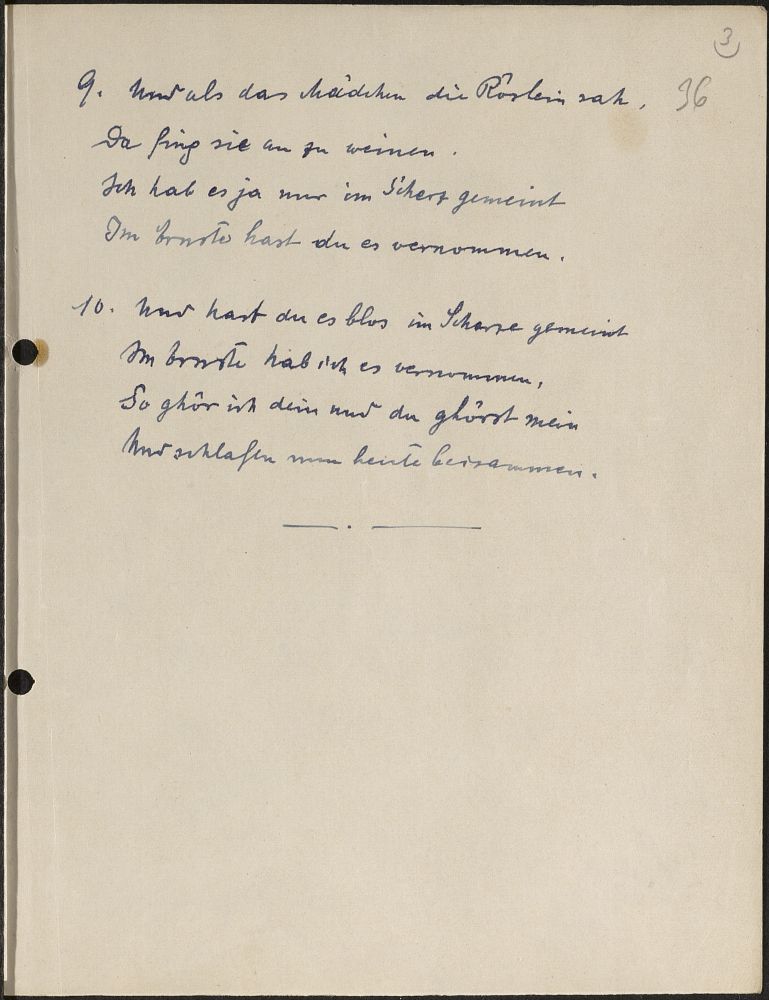 3
36
9. Und als das Mädchen die Röslein sah,
Da fing sie an zu weinen.
Ich hab es ja nur im Scherz gemeint
Im Ernste hast du es vernommen.
10. Und hast du es blos im Scherze gemeint
Im Ernste hab ich es vernommen,
So ghör ich dein und du ghörst mein
Und schlafen nun heute beisammen.